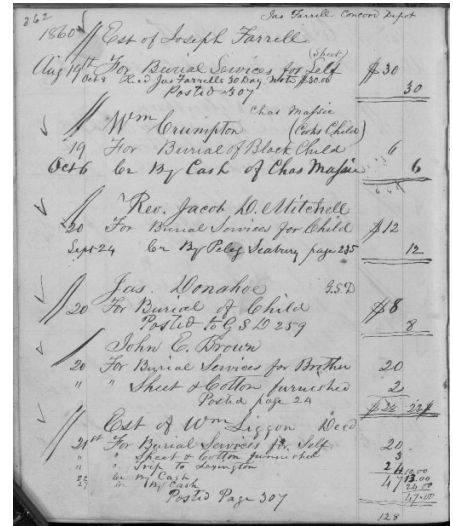 262
Jas Farrell Concord Depot
1860 Est of Joseph Farrell
(Sheet)
Aug 19th For Burial Services for Self $30
Oct 3 Recd Jas Farrells 30 Day Note $30.00 30
Posted 307
Chas Massie
Wm Crumpton (Coks Child)
19 For Burial of Black Child 6
Oct 6 Cr By Cash of Chas Massie 6
Rev. Jacob D. Mitchell
20 For Burial Services for Child $12
Sept 24 Cr By Peleg Seabury page 235 12
Jas. Donahoe G.S.D
20 For Burial of Child $8
Posted to G S D 259 8
John E. Brown
20 For Burial Services for Brother 20
" " Sheet & Cotton furnished 2
Posted page 24 $22 22
Est of Wm Liggon Decd
21st For Burial Services for Self 20
" " Sheet & Cotton furnished 3
" " Trip to Lexington 24
22 Cr By Cash 47 10.00
27 Cr By Cash 13.00
24.00
Posted Page 307 47.00
128